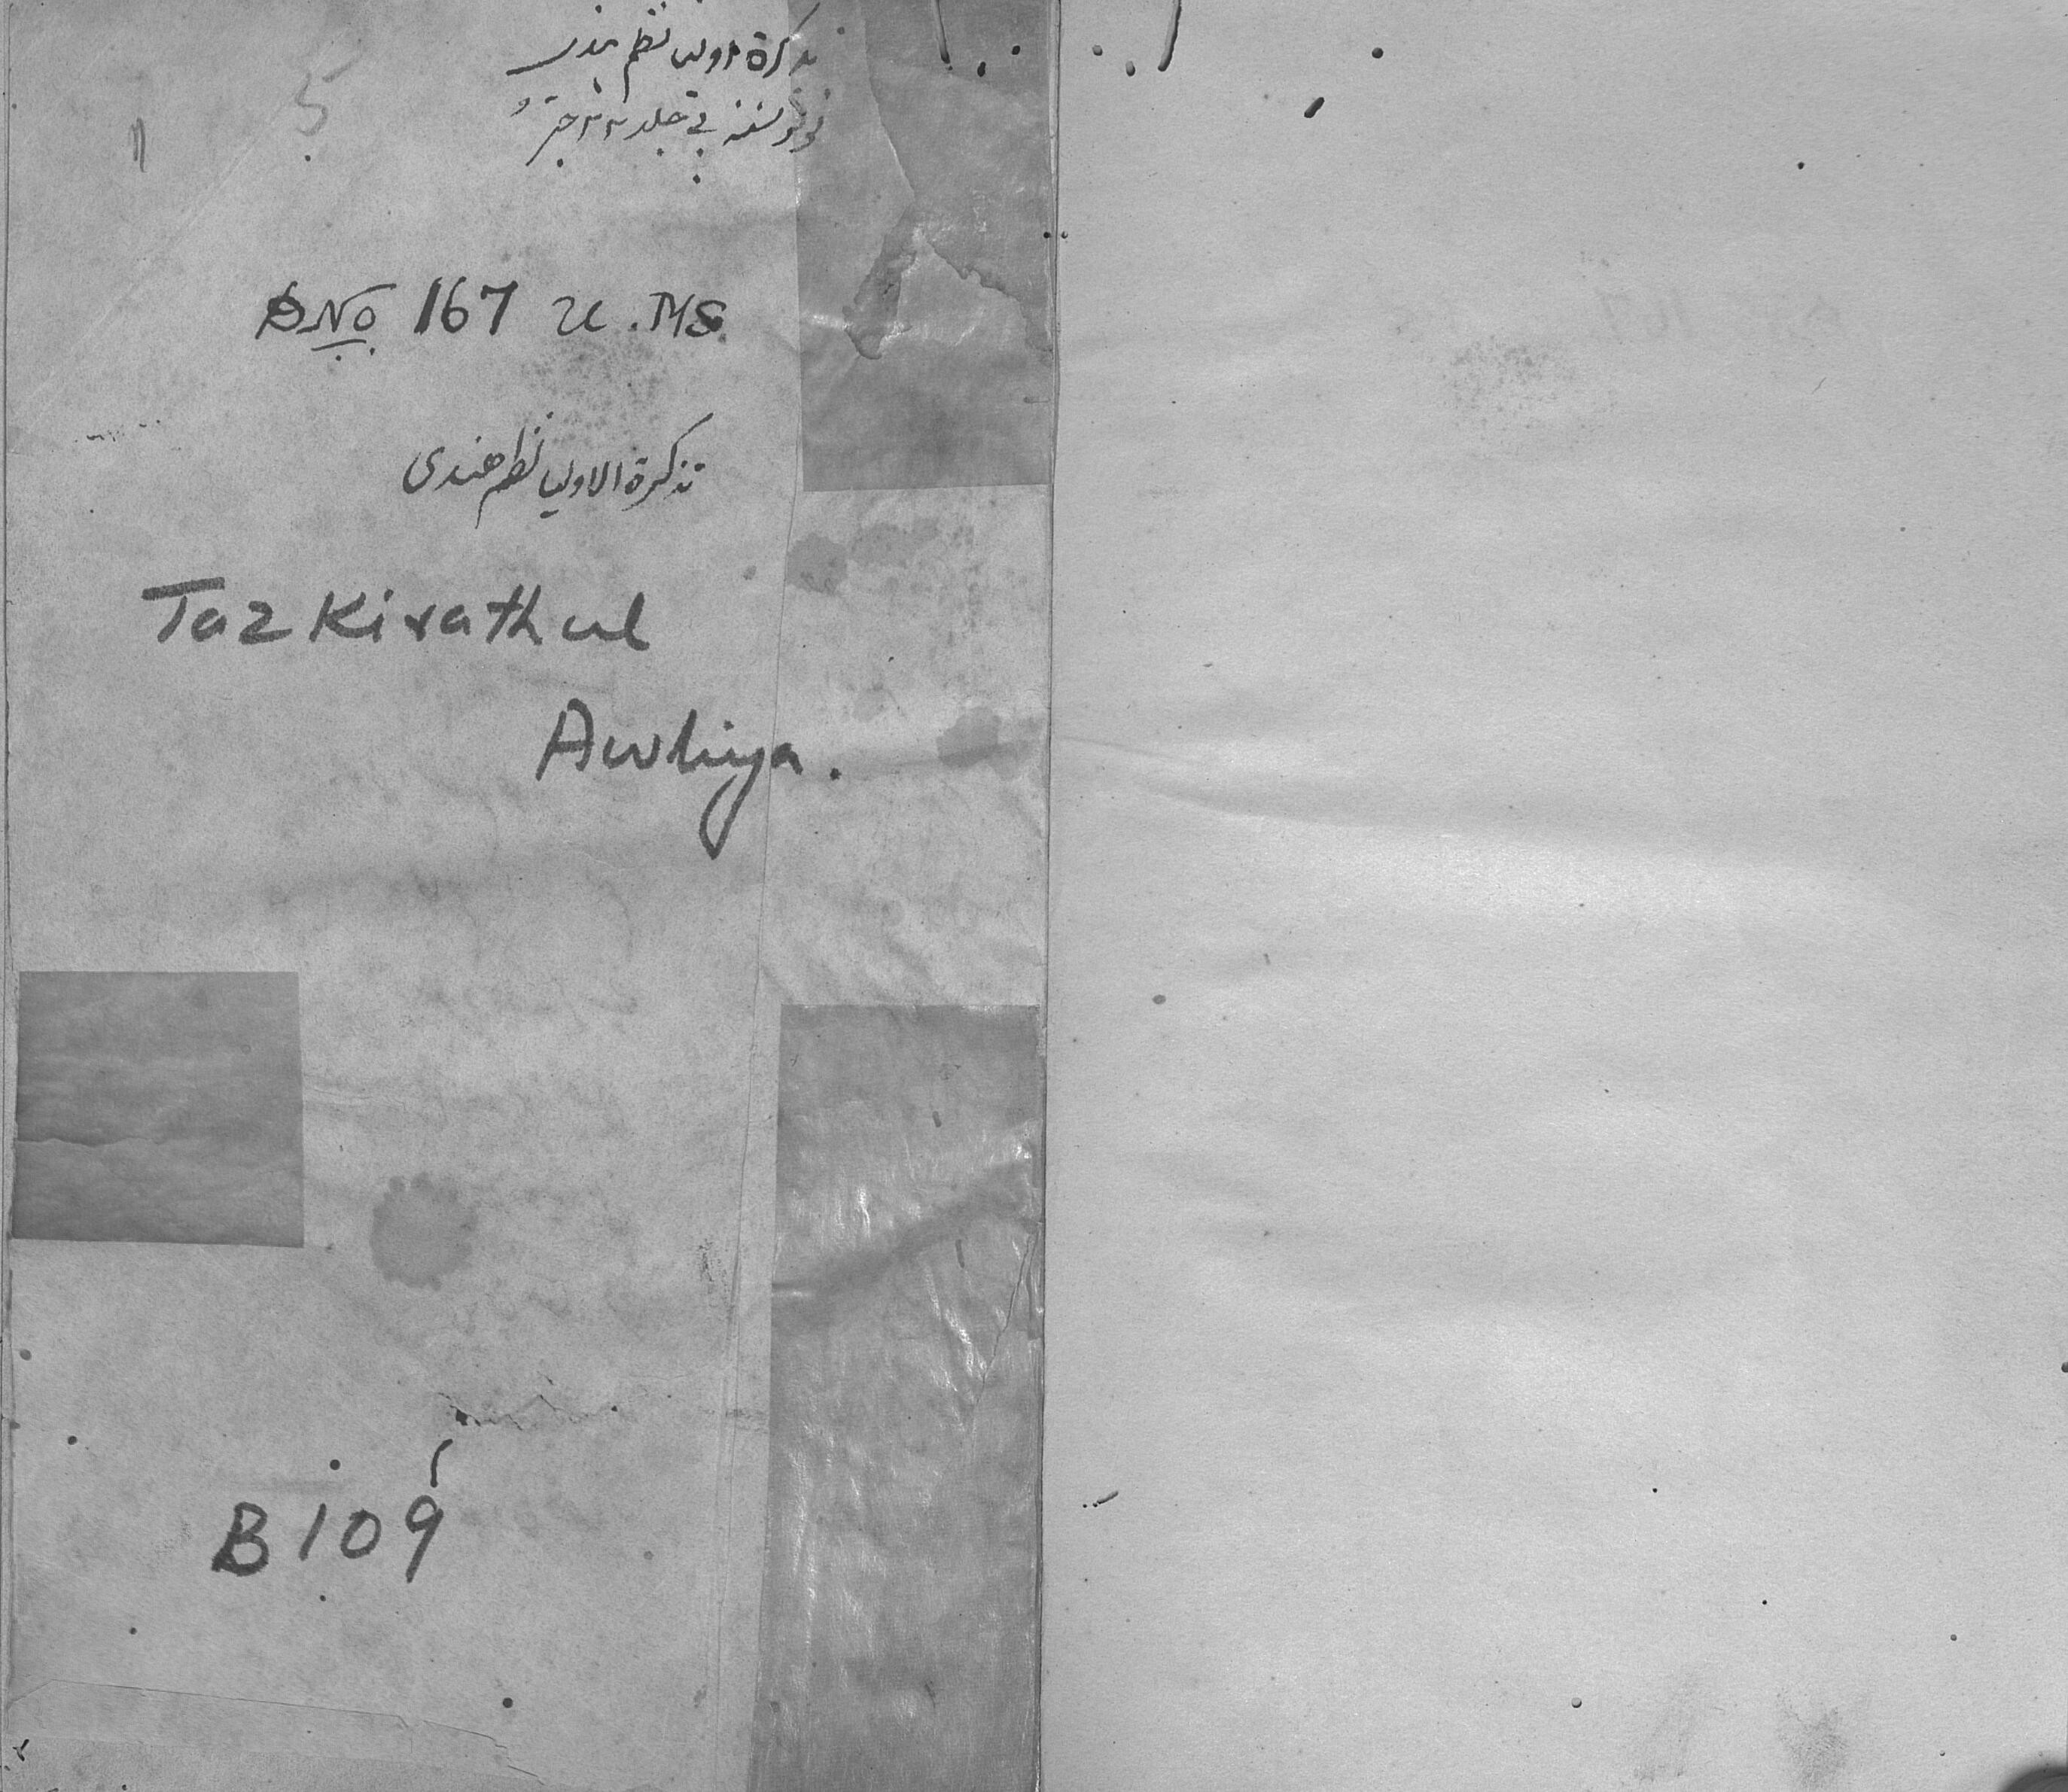 تذکرة اولیا نظم ہندی
5
DNo 167 U.MS.
تذکرة الاولیا نظم ھندی
Tazkirathul
Awliya.
B 109